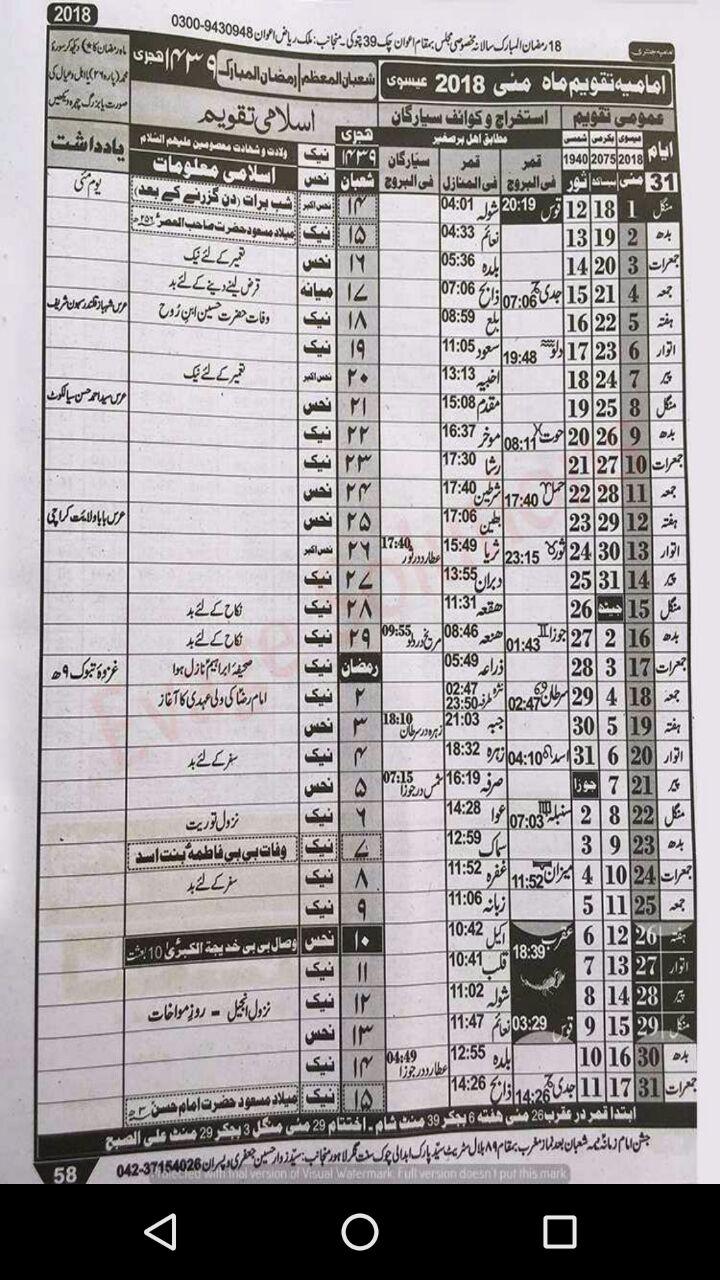 2018
18 رمضان المبارک سالانہ مخصوصی مجلس بمقام اعوان چک 39 چوکی۔ منجانب: ملک ریاض اعوان 9430948-0300
امامیہ جنتری
امامیہ تقویم ماہ مئی 2018 عیسوی شعبان المعظم / رمضان المبارک ۱۴۳۹ ہجری
عمومی تقویم استخراج و کوائف سیارگان اسلامی تقویم
ایام عیسوی 2018 بکرمی 2075 شمسی 1940 مطابق اہل برصغیر ہجری ۱۴۳۹ نیک ولادت و شہادت معصومین علیہم السلام یادداشت
31 مئی بیساکھ ثور قمر فی البروج قمر فی المنازل سیارگان فی البروج شعبان نحس اسلامی معلومات
منگل 1 18 12 قوس 20:19 شولہ 04:01 ۱۴ نحس اکبر شب برات (دن گزرنے کے بعد) یوم مئی
بدھ 2 19 13 نعائم 04:33 ۱۵ نیک میلاد مسعود حضرت صاحب العصر ۲۵۶ھ
جمعرات 3 20 14 بلدہ 05:36 ۱۶ نحس تعمیر کے لئے نیک
جمعہ 4 21 15 جدی 07:06 ذابح 07:06 ۱۷ میانہ قرض لینے دینے کے لئے بد
ہفتہ 5 22 16 بلع 08:59 ۱۸ نیک وفات حضرت حسین ابن روح عرس شہباز قلندر سہون شریف
اتوار 6 23 17 دلو 19:48 سعود 11:05 ۱۹ نیک
پیر 7 24 18 اخبیہ 13:13 ۲۰ نحس اکبر تعمیر کے لئے نیک
منگل 8 25 19 مقدم 15:08 ۲۱ نحس عرس سید احمد حسن سیالکوٹ
بدھ 9 26 20 حوت 08:11 موخر 16:37 ۲۲ نیک
جمعرات 10 27 21 رشا 17:30 ۲۳ نیک
جمعہ 11 28 22 حمل 17:40 شرطین 17:40 ۲۴ نحس
ہفتہ 12 29 23 بطین 17:06 ۲۵ نحس عرس بابا ولایت کراچی
اتوار 13 30 24 ثور 23:15 ثریا 15:49 عطارد در ثور 17:40 ۲۶ نحس اکبر
پیر 14 31 25 دبران 13:55 ۲۷ نیک
منگل 15 جیٹھ 26 ھقعہ 11:31 ۲۸ نیک نکاح کے لئے بد
بدھ 16 2 27 جوزا 01:43 ھنعہ 08:46 مریخ در دلو 09:55 ۲۹ نیک نکاح کے لئے بد
جمعرات 17 3 28 ذراعہ 05:49 رمضان نیک صحیفہ ابراہیم نازل ہوا غزوہ تبوک ۹ھ
جمعہ 18 4 29 سرطان 02:47 نثرہ 02:47 طرفہ 23:50 ۲ نیک امام رضا کی ولی عہدی کا آغاز
ہفتہ 19 5 30 جبہ 21:03 زہرہ در سرطان 18:10 ۳ نحس
اتوار 20 6 31 اسد 04:10 زہرہ 18:32 ۴ نیک سفر کے لئے بد
پیر 21 7 جوزا صرفہ 16:19 شمس در جوزا 07:15 ۵ نحس
منگل 22 8 2 سنبلہ 07:03 عوا 14:28 ۶ نیک نزول توریت
بدھ 23 9 3 سماک 12:59 ۷ نیک وفات بی بی فاطمہ بنت اسد
جمعرات 24 10 4 میزان 11:52 غفرہ 11:52 ۸ نیک سفر کے لئے بد
جمعہ 25 11 5 زبانہ 11:06 ۹ نیک
ہفتہ 26 12 6 عقرب 18:39 اکیل 10:42 ۱۰ نحس وصال بی بی خدیجۃ الکبریٰ 10 بعثت
اتوار 27 13 7 قلب 10:41 ۱۱ نیک
پیر 28 14 8 شولہ 11:02 ۱۲ نیک نزول انجیل - روز مواخات
منگل 29 15 9 قوس 03:29 نعائم 11:47 ۱۳ نحس
بدھ 30 16 10 بلدہ 12:55 عطارد در جوزا 04:49 ۱۴ نیک
جمعرات 31 17 11 جدی 14:26 ذابح 14:26 ۱۵ نیک میلاد مسعود حضرت امام حسن ۳ھ
ابتدا قمر در عقرب 26 مئی ہفتہ 6 بجکر 39 منٹ شام۔ اختتام 29 مئی منگل 3 بجکر 29 منٹ علی الصبح
جشن امام زمانہ نیمہ شعبان بعد نماز مغرب بمقام ۸۹ ہلال سٹریٹ سید پارک ابدالی چوک سنت نگر لاہور منجانب: سید زوار حسین جعفری و پسران 37154026-042
58
Protected with trial version of Visual Watermark. Full version doesn't put this mark.